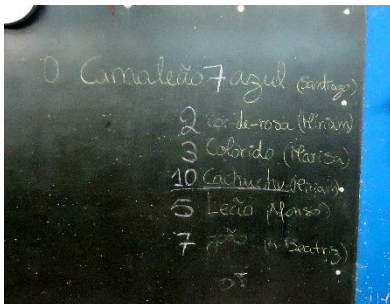 O Camaleão 7 azul (Santiago)
2 cor-de-rosa (Miriam)
3 Colorido (Marisa)
10 Cachuchu (Miriam)
5 Leão (Afonso)
7 João (A. Beatriz)